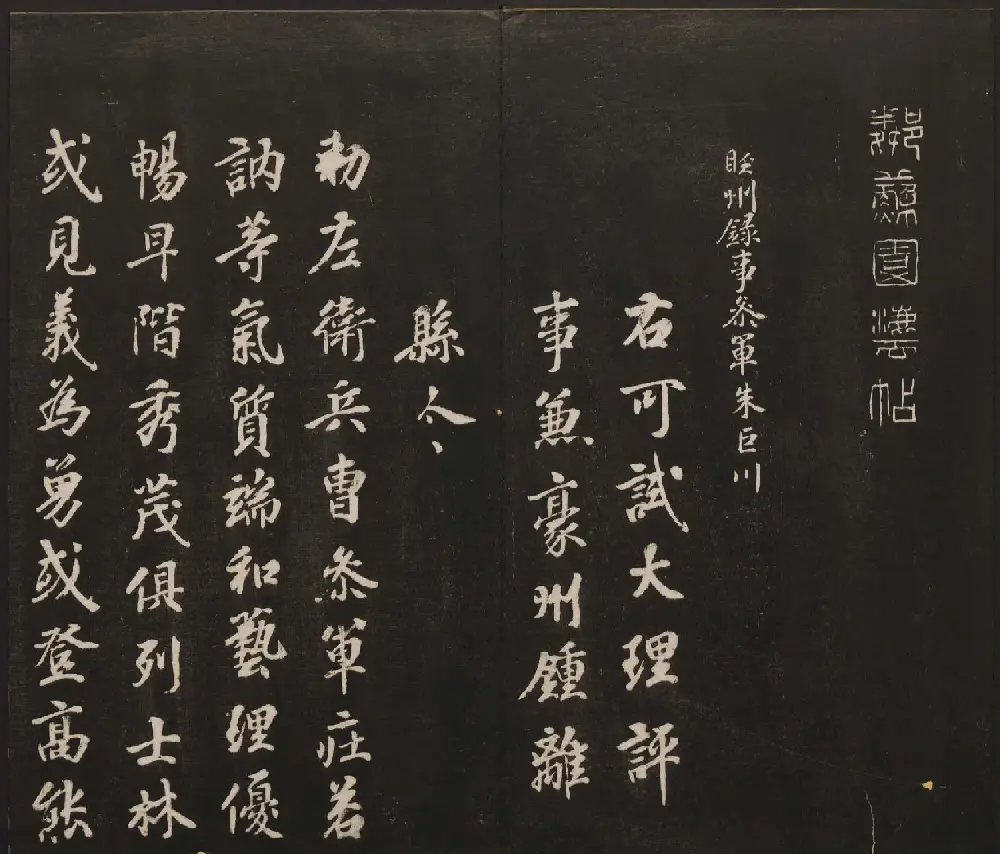 鄰蘇園灋帖
睦州録事叅軍朱巨川
右可試大理評
事兼豪州鍾離
縣令
勑左衛兵曹叅軍莊若
訥等氣質端和藝理優
暢早階秀茂俱列士林
或見義為勇或登高能